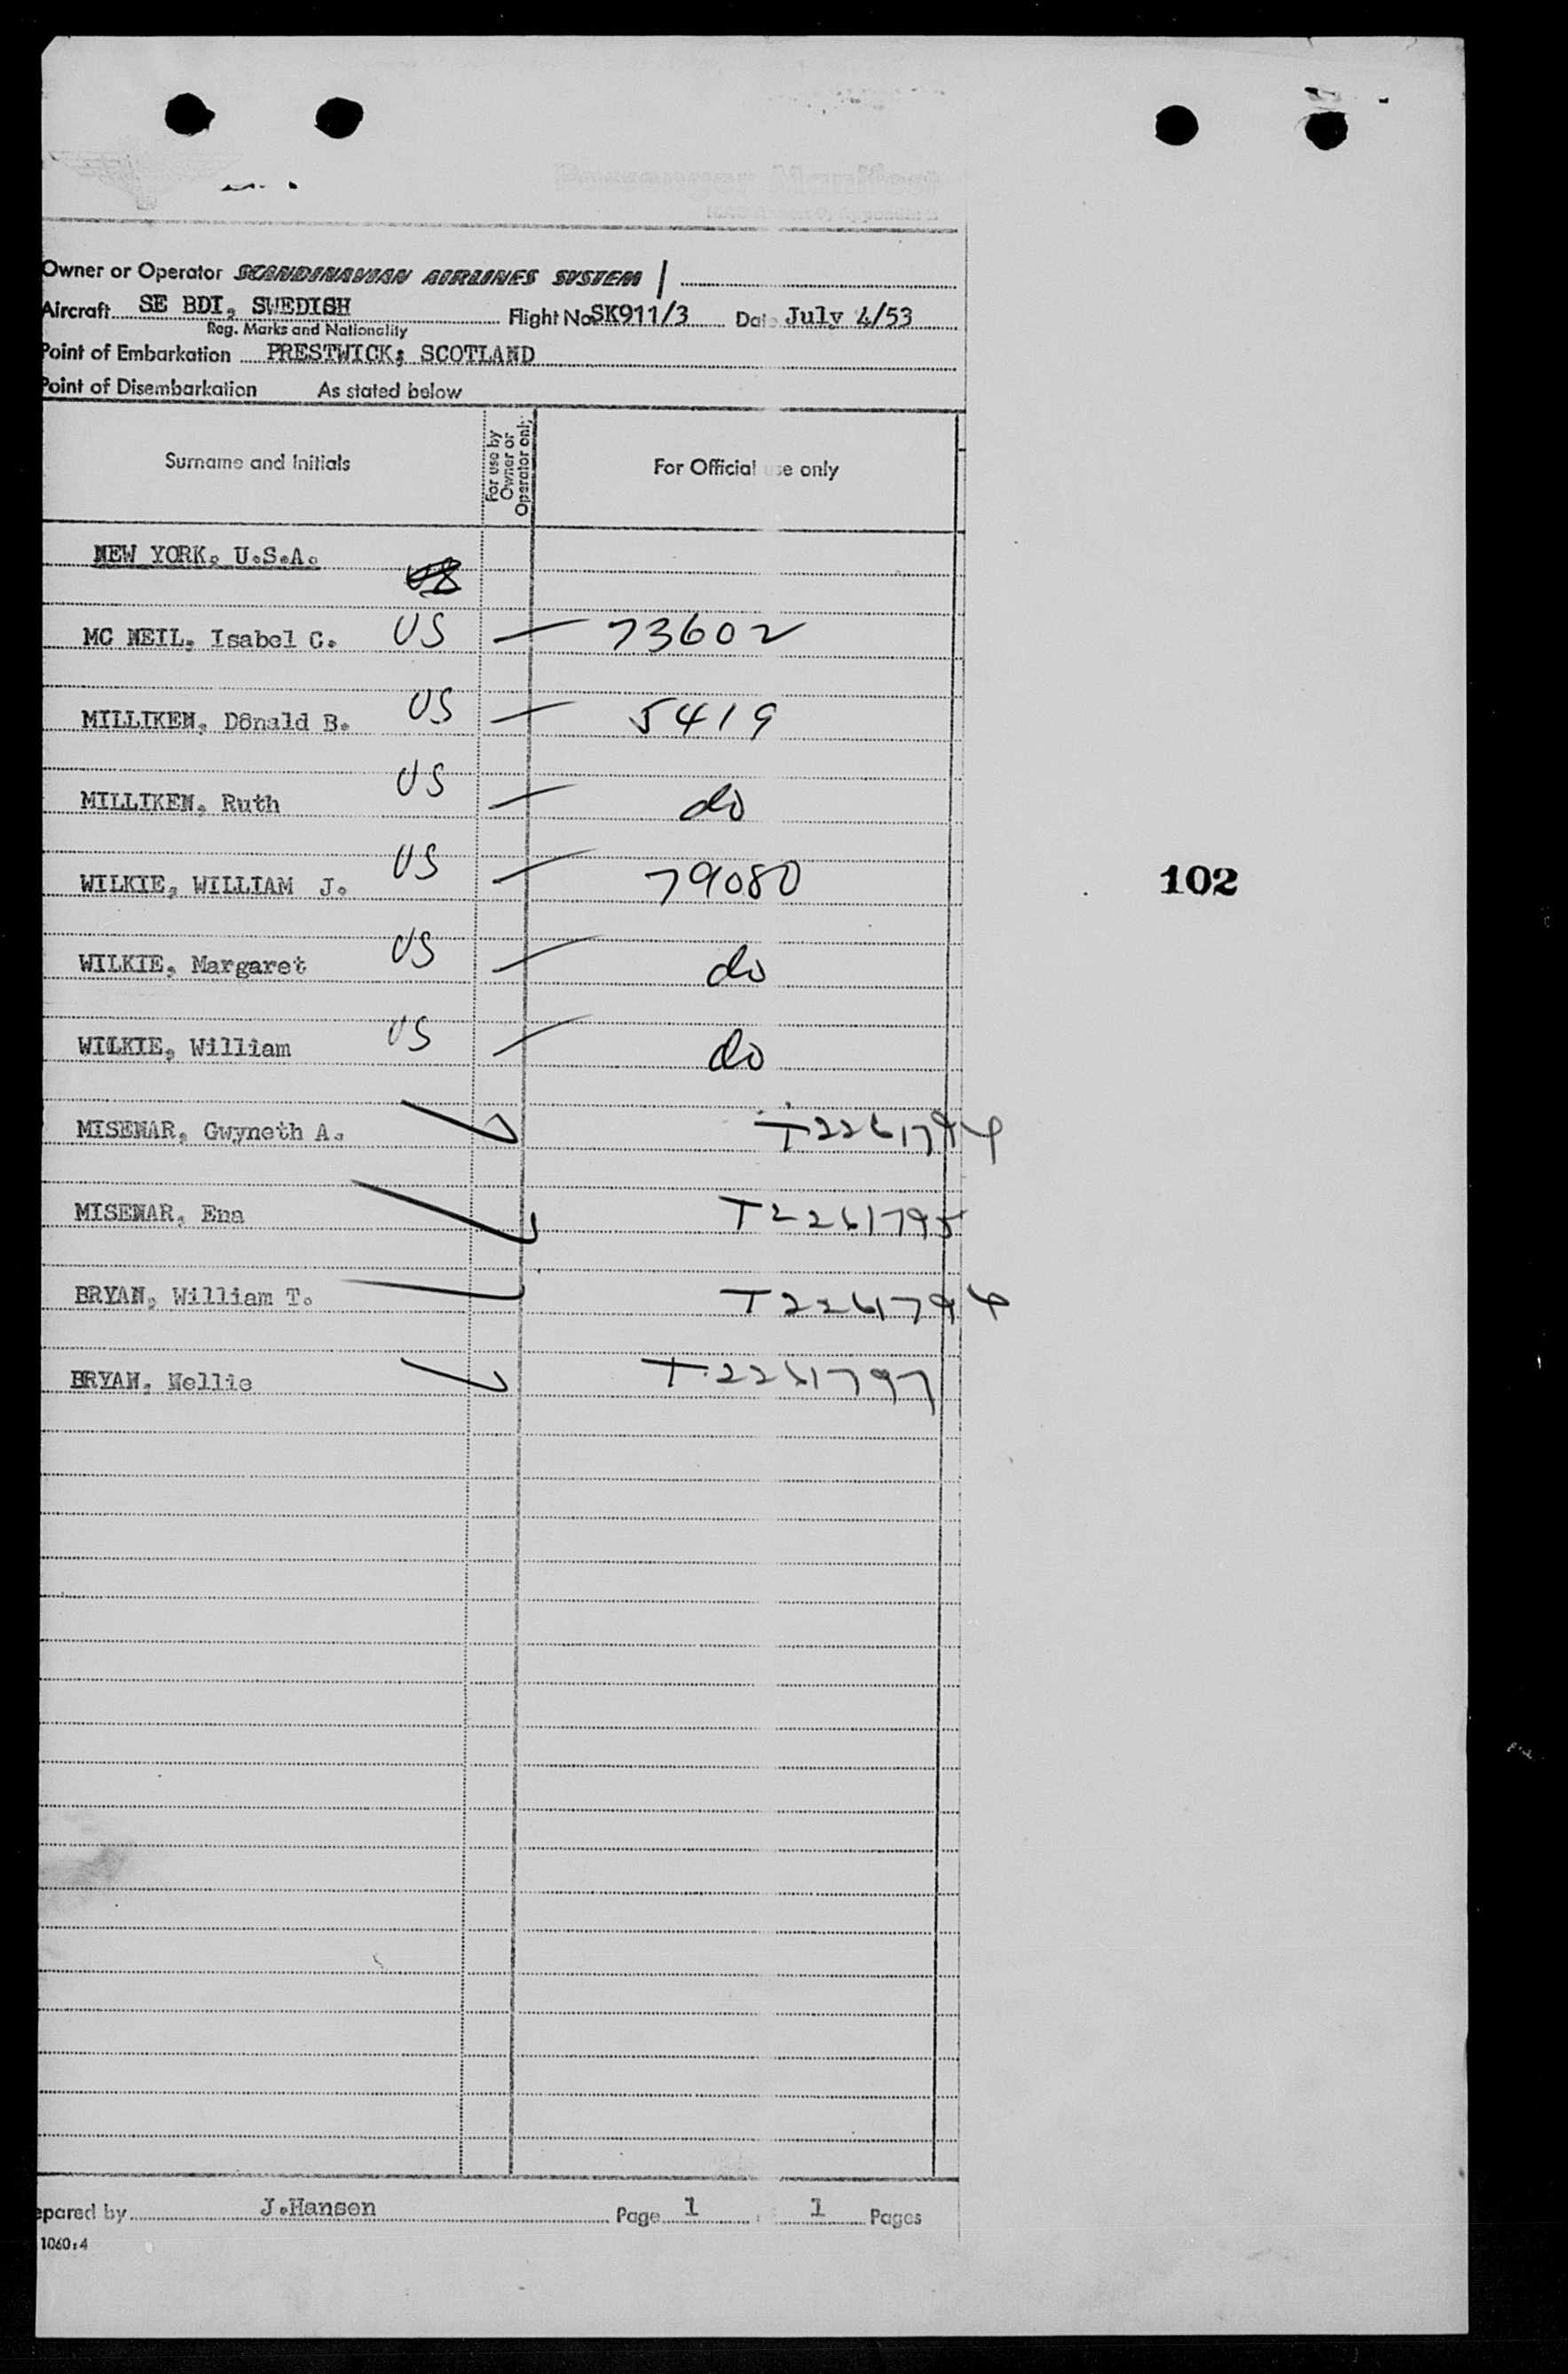 Owner or Operator SCANDINAVIAN AIRLINES SYSTEM
Aircraft SE BDI, SWEDISH Flight No SK911/3 Date July 4/53
Reg. Marks and Nationality
Point of Embarkation PRESTWICK, SCOTLAND
Point of Disembarkation As stated below
Surname and Initials For use by Owner or Operator only For Official use only
NEW YORK, U.S.A.
MC NEIL, Isabel C. US 73602
MILLIKEN, Donald B. US 5419
MILLIKEN, Ruth US do
WILKIE, WILLIAM J. US 79080
102
WILKIE, Margaret US do
WILKIE, William US do
MISENAR, Gwyneth A. T2261794
MISENAR, Ena T2261795
BRYAN, William T. T2261796
BRYAN, Nellie T2261797
epared by J.Hansen Page 1 1 Pages
1060:4